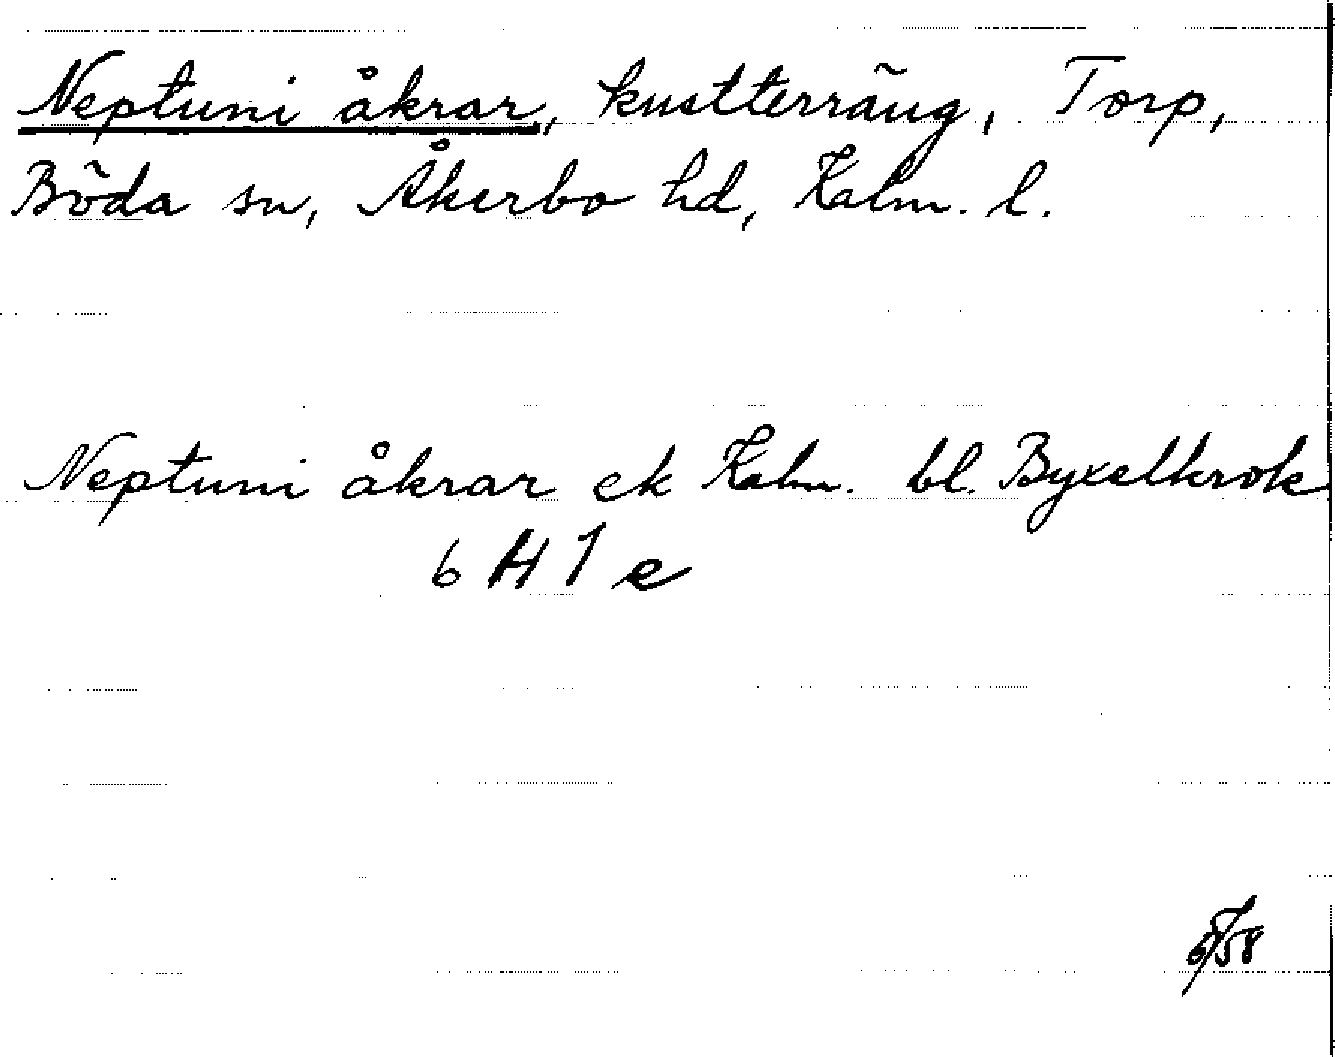 Neptuni åkrar, kustterräng, Torp,
Böda sn, Åkerbo hd, Kalm. l.
Neptuni åkrar ek Kalm. bl. Byxelkrok
6 H 1 e